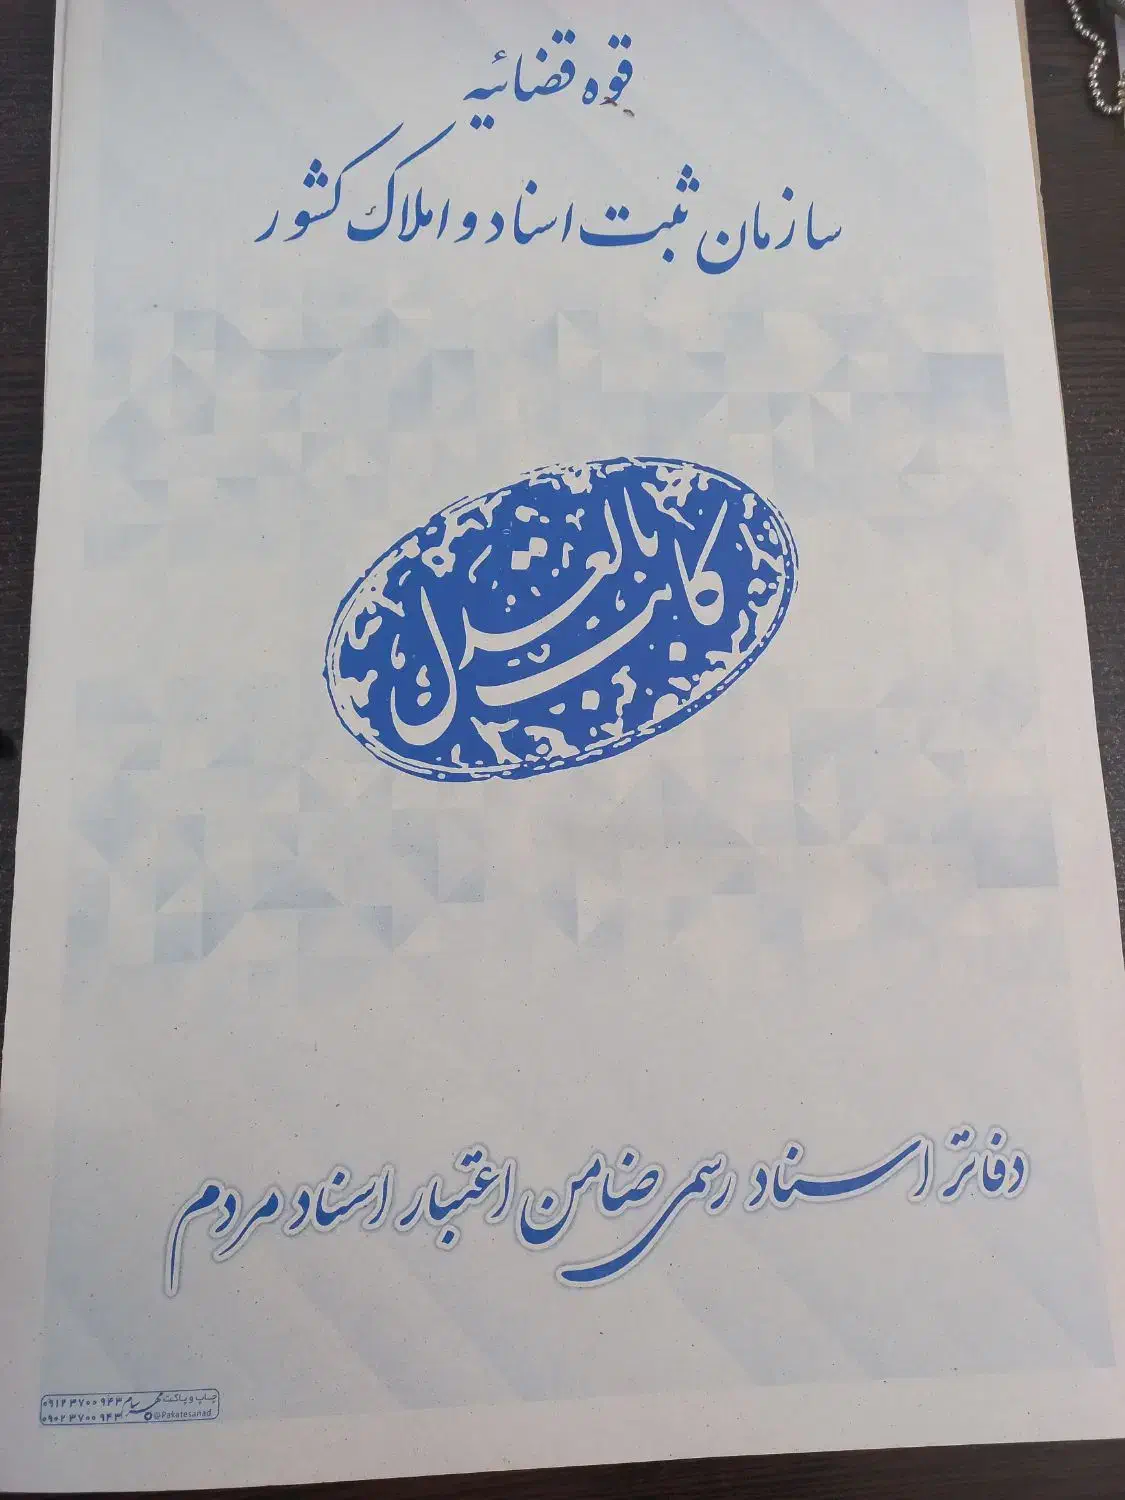 قوه قضائیه
سازمان ثبت اسناد و املاک کشور
کاتب بالعدل
دفاتر اسناد رسمی ضامن اعتبار اسناد مردم
چاپ و پاکت
۰۹۱۲۳۷۰۰۹۴۳
۰۹۰۲۳۷۰۰۹۴۳
@Pakatesanad